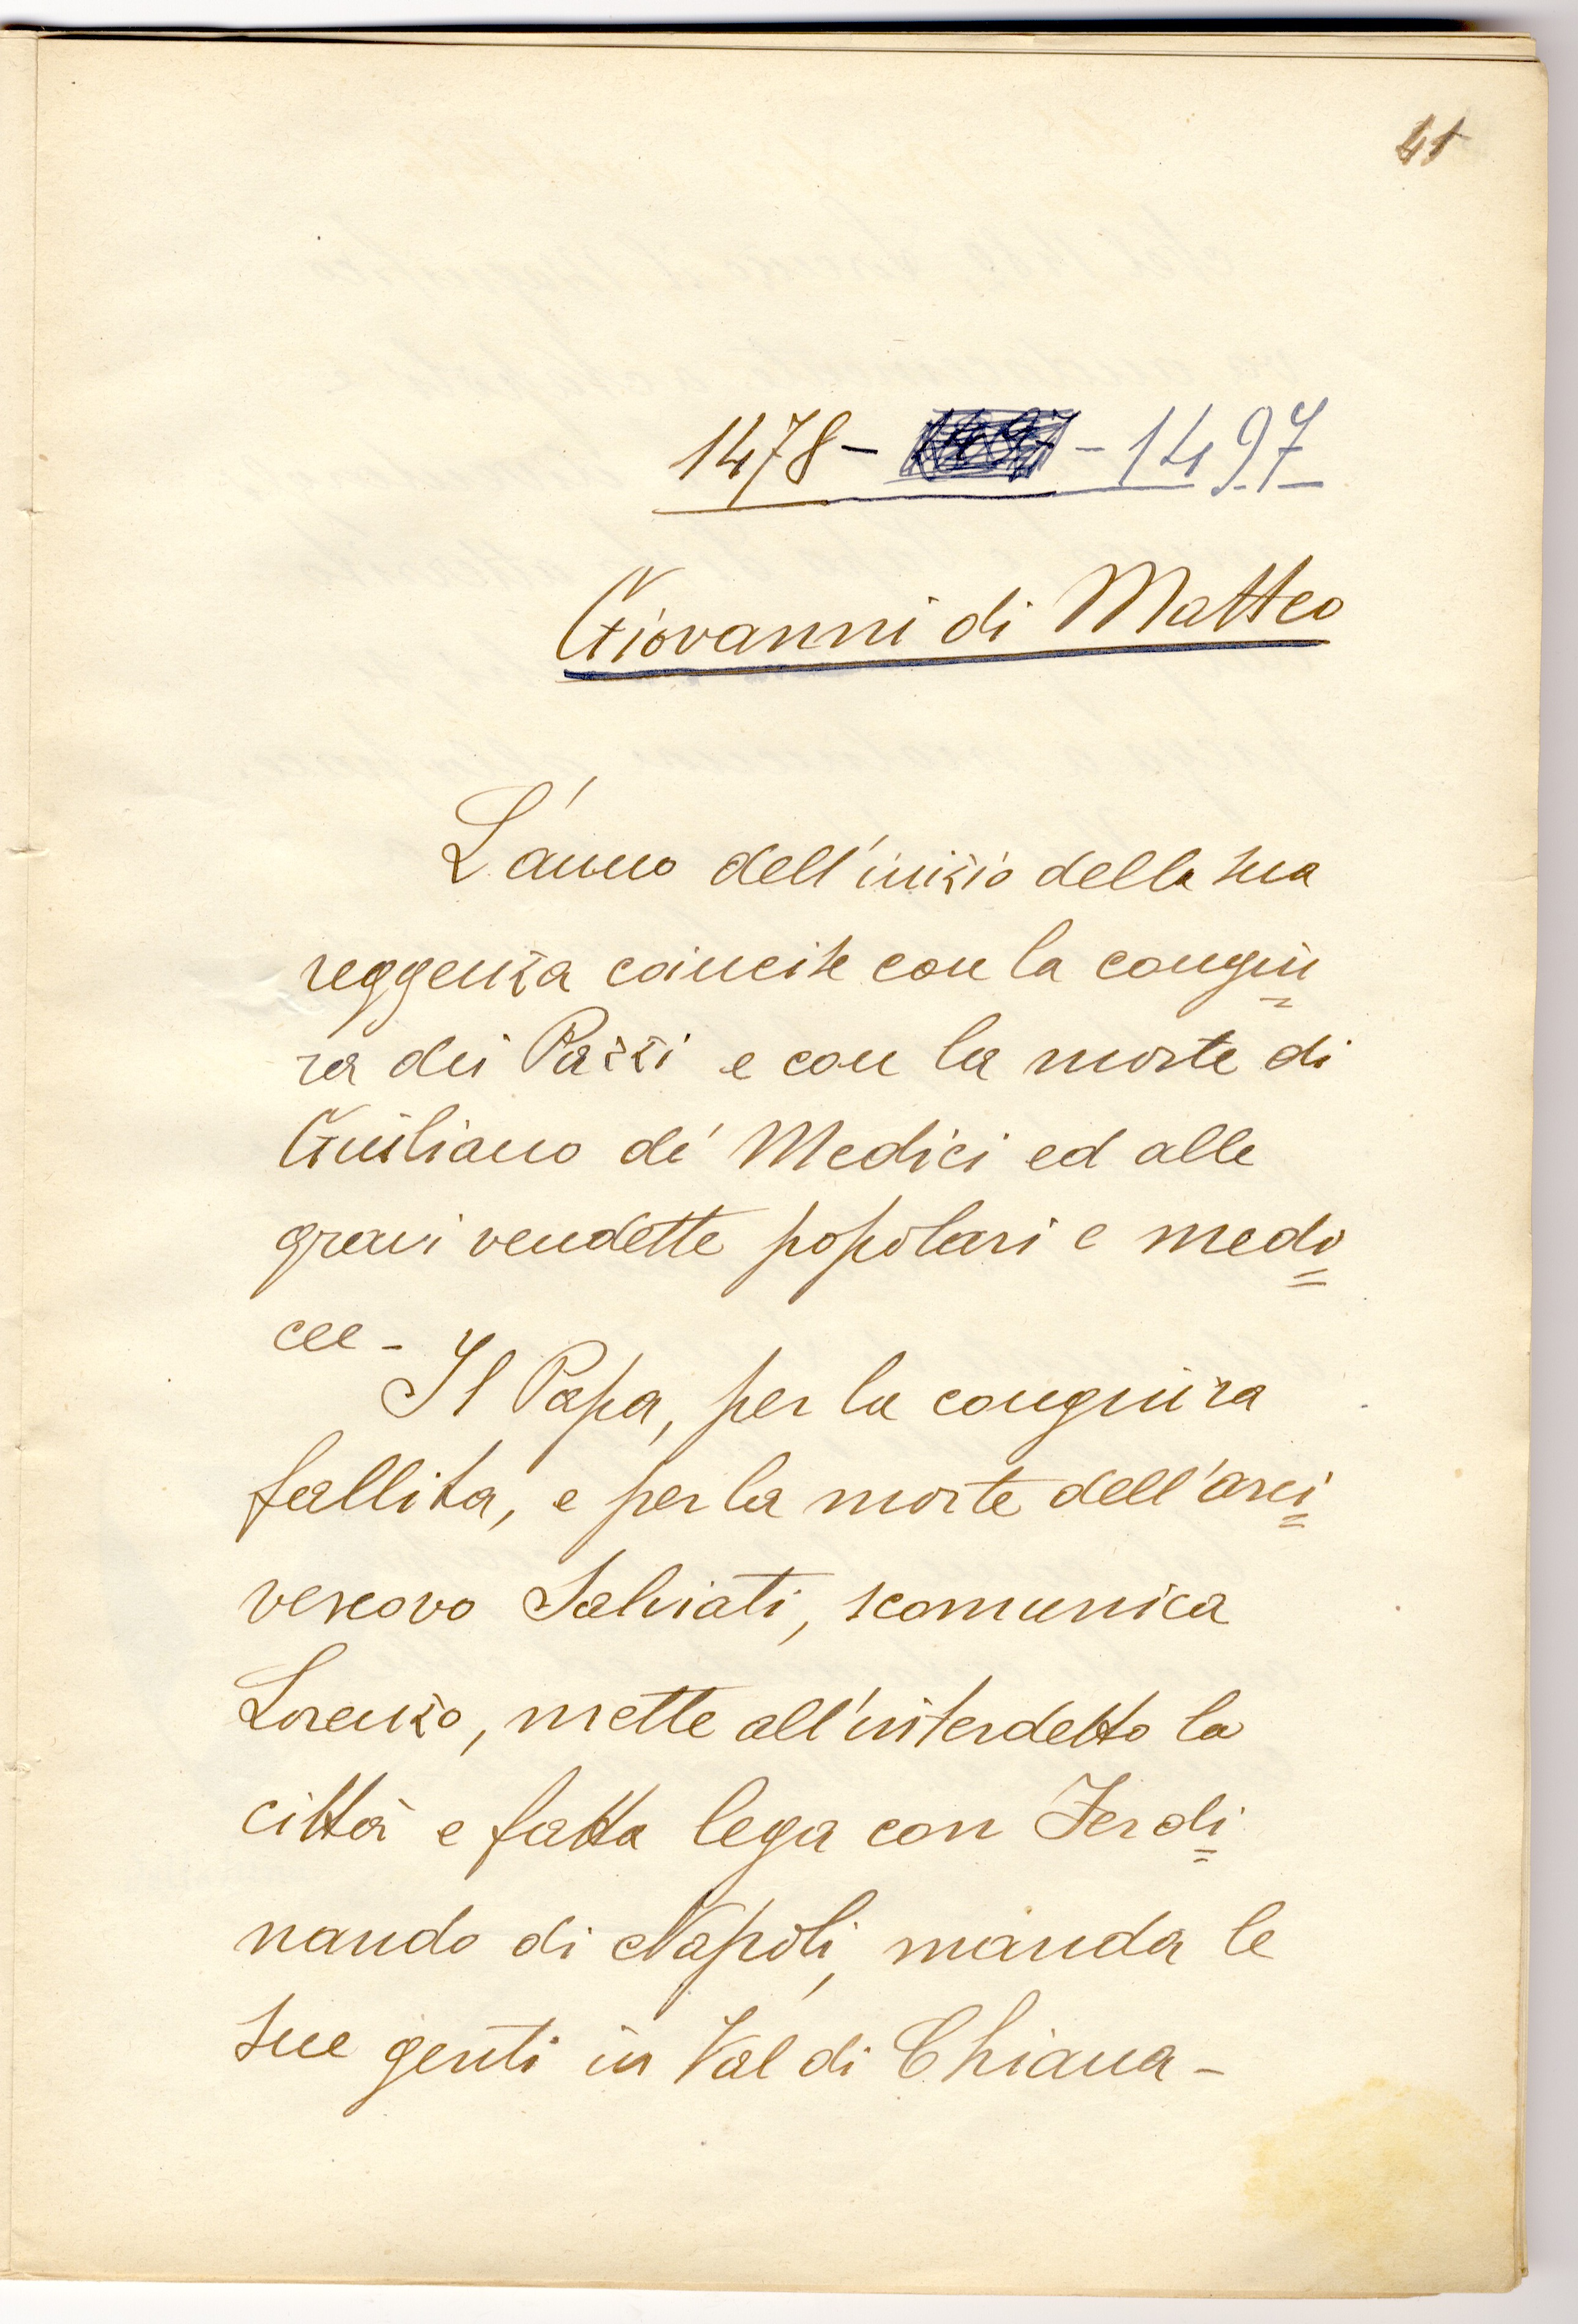 41
1478 - - 1497
Giovanni di Matteo
L'anno dell'inizio della sua
reggenza coincise con la congiu=
ra dei Pazzi e con la morte di
Giuliano de' Medici ed alle
gravi vendette popolari e medi=
cee -
Il Papa, per la congiura
fallita, e per la morte dell'arci=
vescovo Salviati, scomunica
Lorenzo, mette all'interdetto la
città e fatta lega con Ferdi=
nando di Napoli, manda le
sue genti in Val di Chiana -